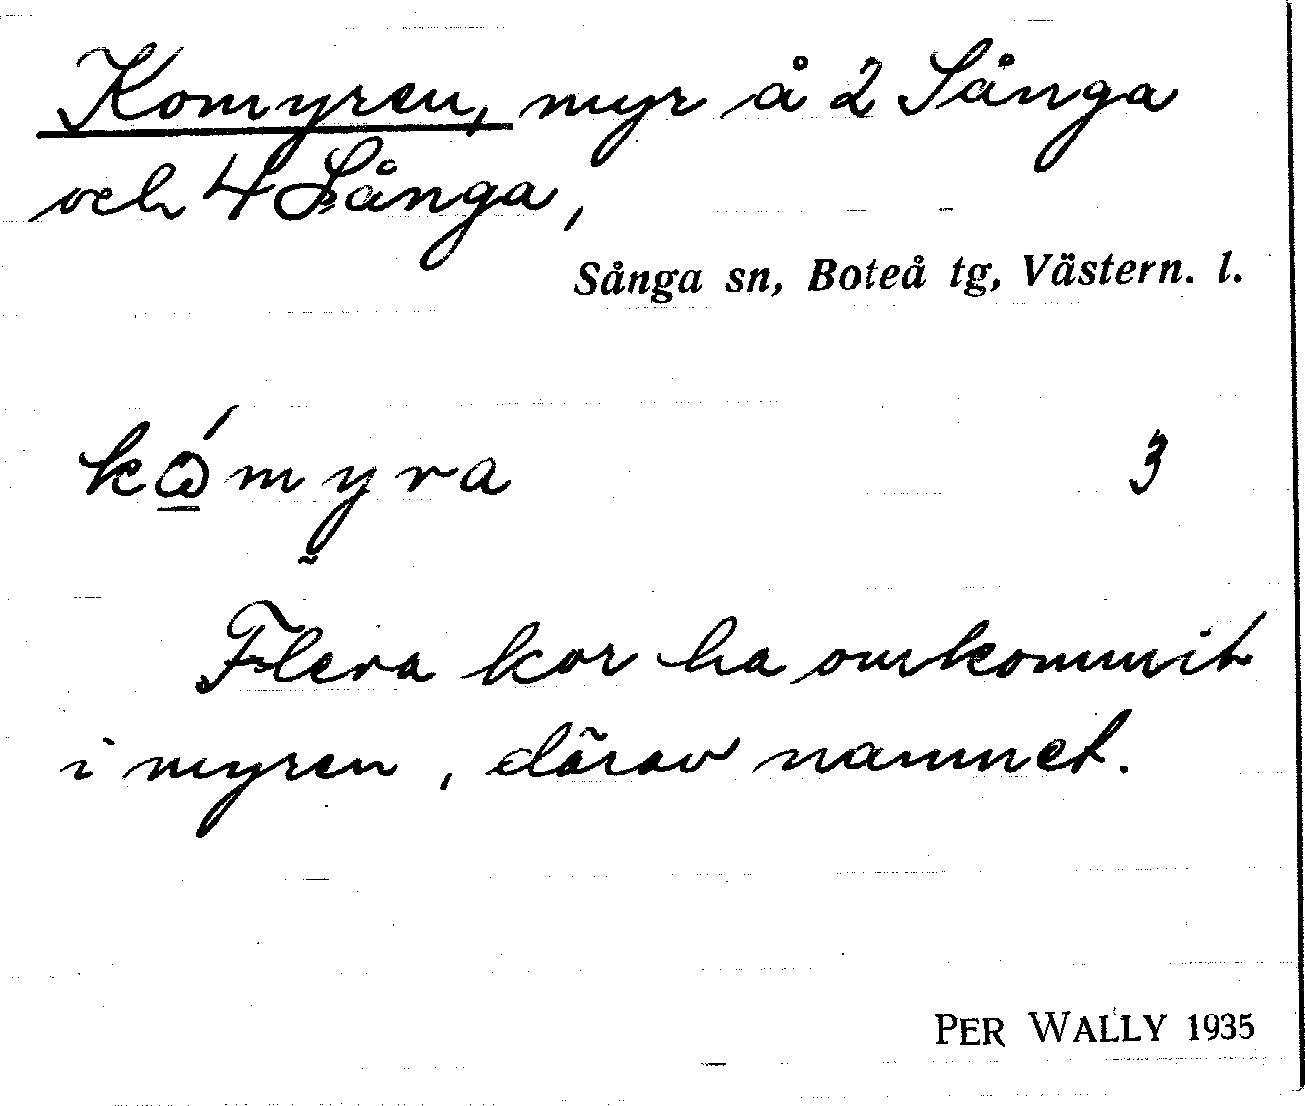 Komyren, myr å 2 Sånga
och 4 Sånga,
Sånga sn, Boteå tg, Västern. l.
kώ̲myra 3
Flera kor ha omkommit
i myren, därav namnet.
PER WALLY 1935